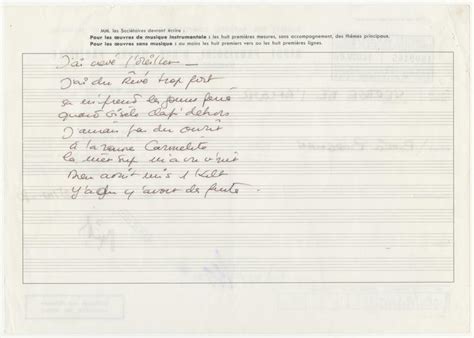 MM. les Sociétaires devront écrire :
Pour les œuvres de musique instrumentale : les huit premières mesures, sans accompagnement, des thèmes principaux.
Pour les œuvres sans musique : au moins les huit premiers vers ou les huit premières lignes.
J'ai crevé l'oreiller
J'ai du Rêvé trop fort
ça m'prend les jours ferié
quand Gisèle clap' dehors
J'aurais pas du ouvrir
à la rouquine Carmelite
la mèr'sup m'a vu v'nir
Dieu avait mis 1 Kilt
Y'a du y avoir des fuites